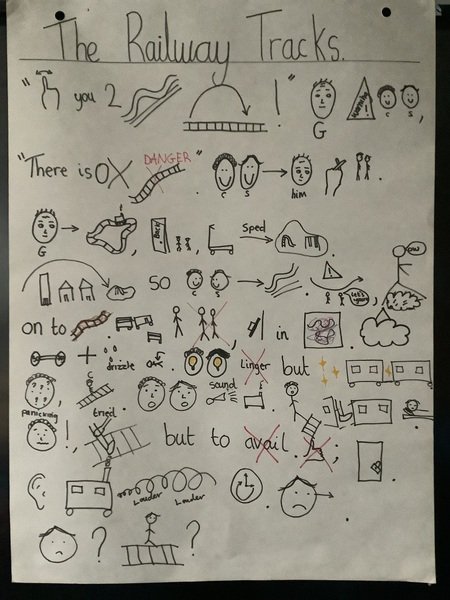 The Railway Tracks.
" you 2 ! " G Warning! C S,
"There is 0 X DANGER" . C S him .
G , Back , Sped .
so C S . Let's go , ow
on to . , in
+ drizzle . Linger but
panicking , C tried . sound .
! , but to avail . ; .
Louder Louder .
? ?